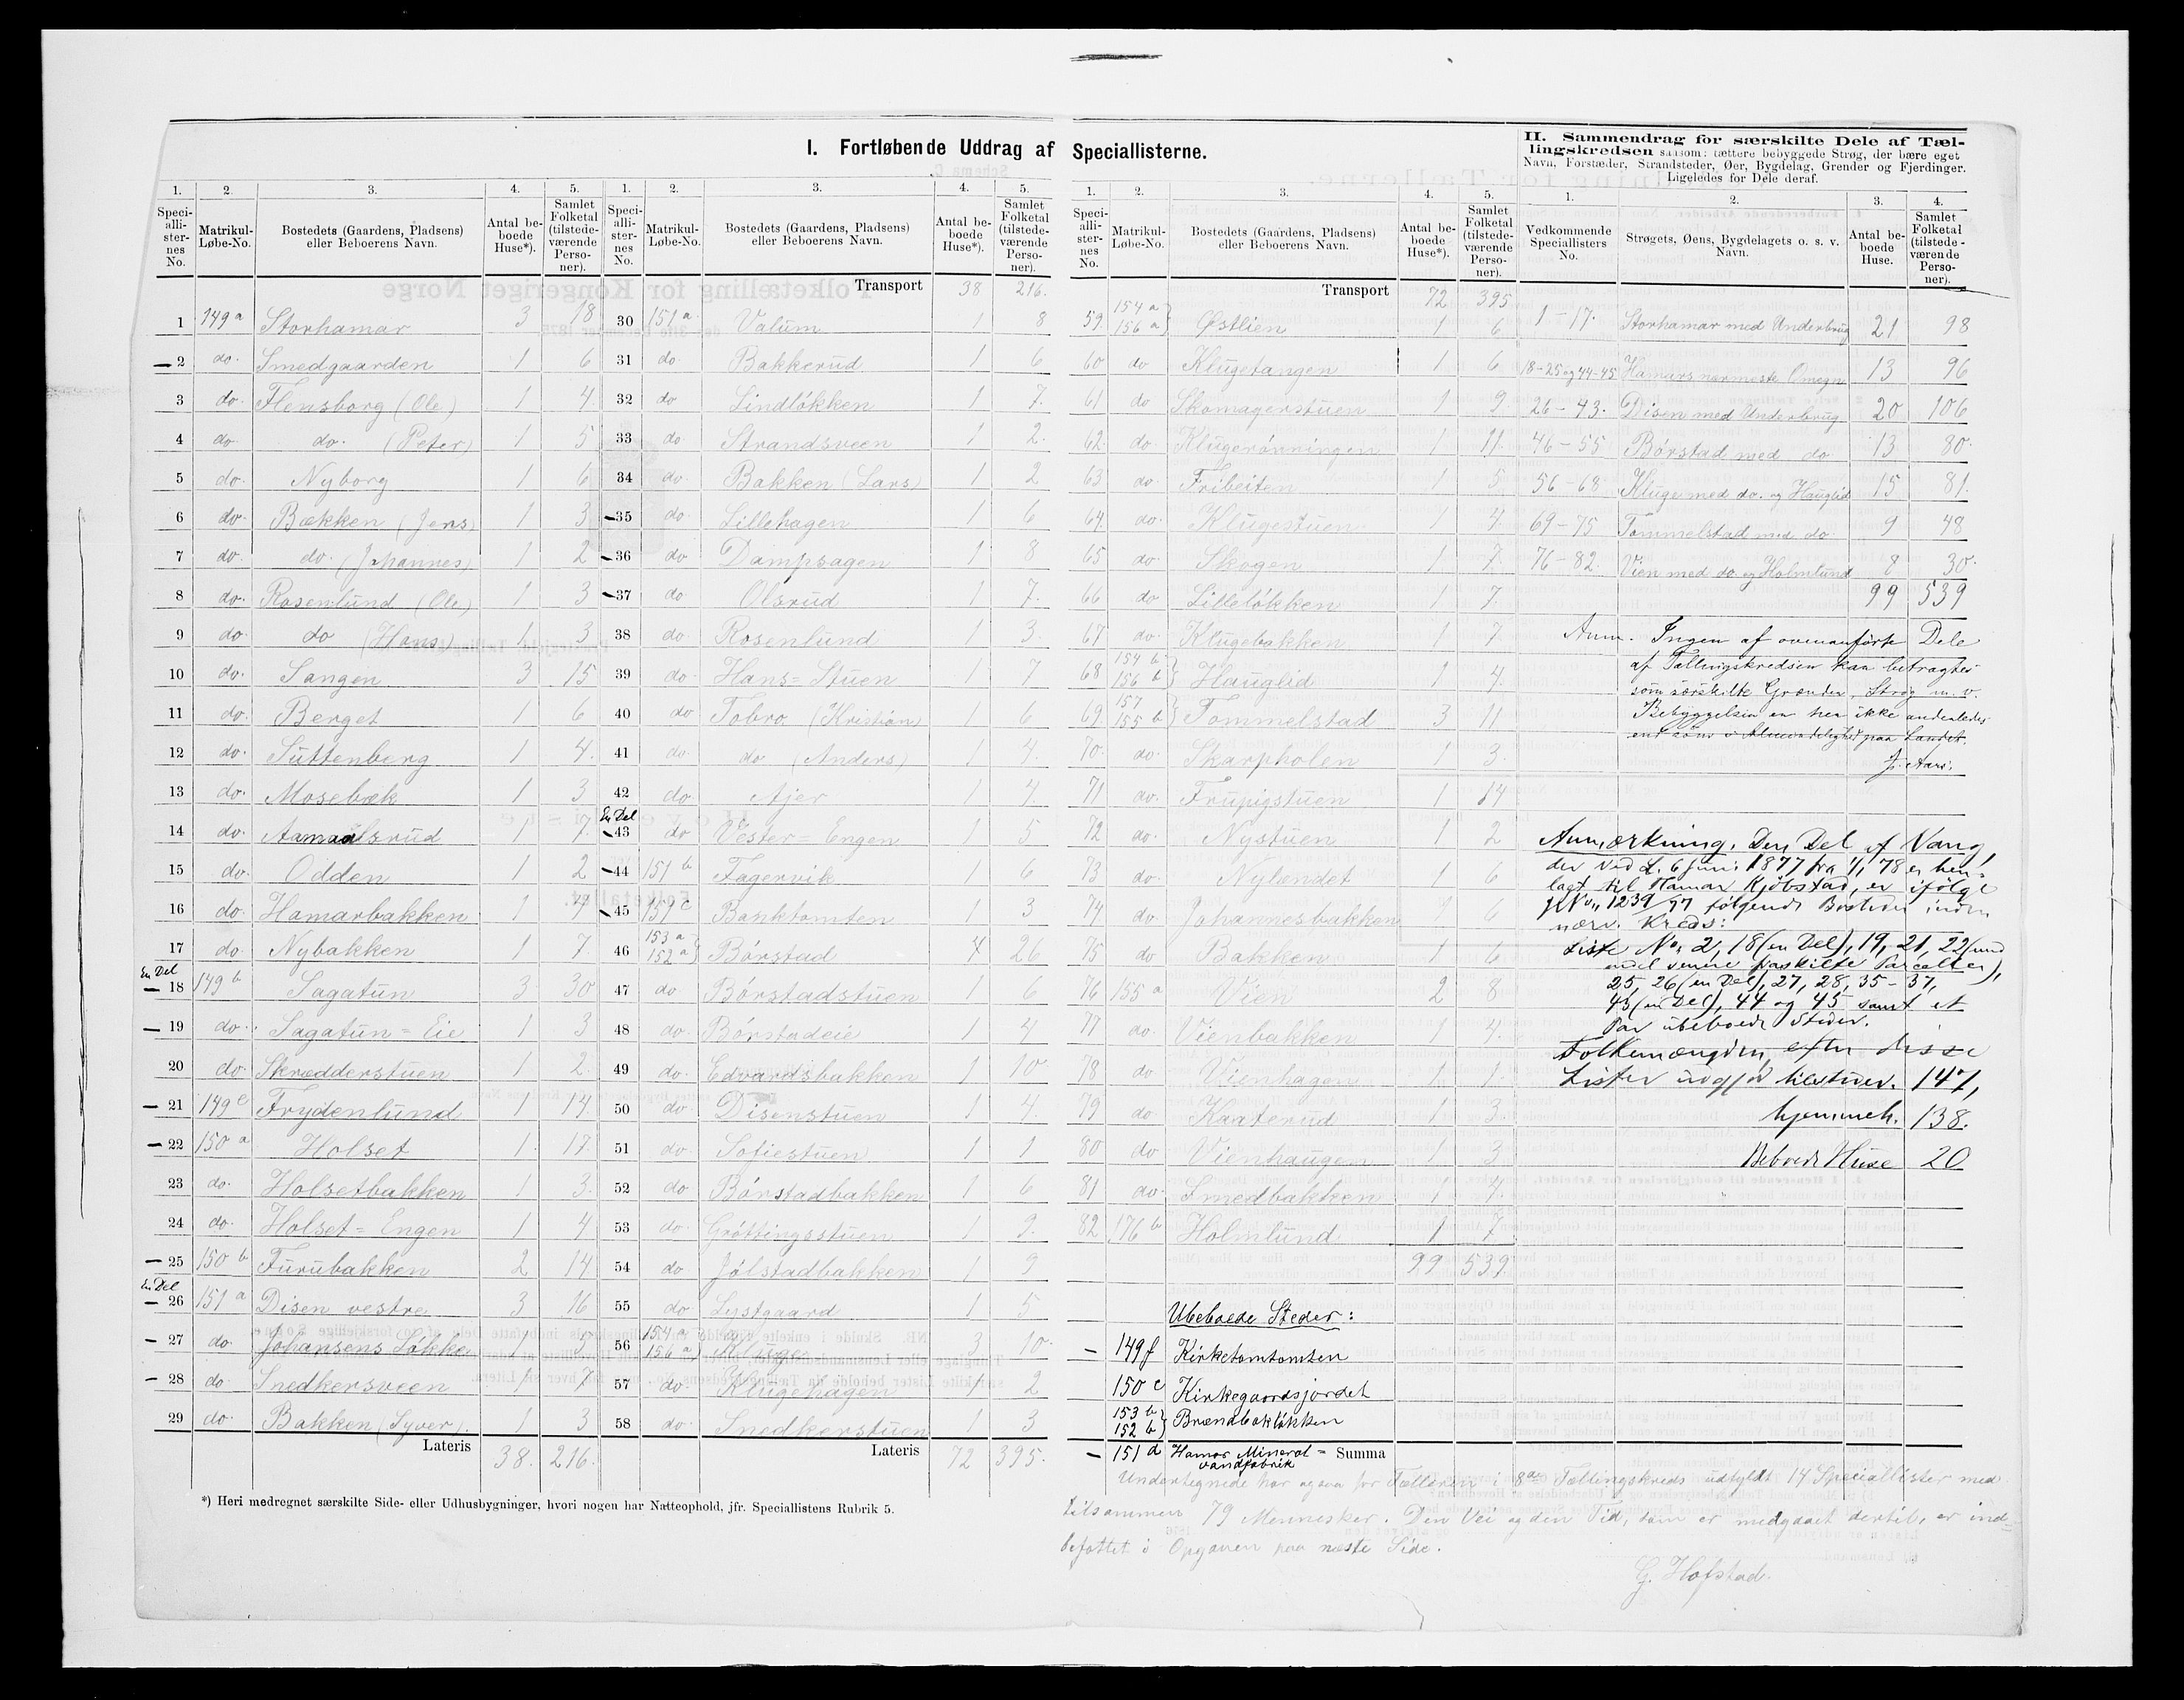 I. Fortløbende Uddrag af Speciallisterne.
II. Sammendrag for særskilte Dele af Tæl-
lingskredsen saasom: tættere bebyggede Strøg, der bære eget
Navn, Forstæder, Strandsteder, Øer, Bygdelag, Grender og Fjerdinger.
Ligeledes for Dele deraf.
1. 2. 3. 4. 5.
Speciallisternes No. Matrikul-Løbe-No. Bostedets (Gaardens, Pladsens) eller Beboerens Navn. Antal beboede Huse*). Samlet Folketal (tilstedeværende Personer).
1 149a Storhamar 3 18
2 do. Smedgaarden 1 6
3 do. Flensborg (Ole) 1 4
4 do. do. (Peter) 1 5
5 do. Nyborg 1 6
6 do. Bækken (Jens) 1 3
7 do. do. (Johannes) 1 2
8 do. Rosenlund (Ole) 1 3
9 do. do (Hans) 1 3
10 do. Sangen 3 15
11 do. Berget 1 6
12 do. Suttenberg 1 4.
13 do. Mosebæk 1 3
14 do. Aamaalsrud 1 7.
15 do. Odden 1 2
16 do. Hamarbakken 1 4
17 do Nybakken 1 7.
En Del
18 149b Sagatun 3 30
19 do. Sagatun=Eie 1 3
20 do. Skrædderstuen 1 2.
21 149e Frydenlund 1 14
22 150a Holset 1. 17.
23 do. Holsetbakken 1 3.
24 do. Holset=Engen 1 4
25 150b Furubakken 2 14
En Del
26 151a Disen vestre 3 16
27 do Johansens Løkke 1 3
28 do. Snedkersveen 1 7
29 do. Bakken (Syver). 1 3
Lateris 38. 216.
*) Heri medregnet særskilte Side- eller Udhusbygninger, hvori nogen har Natteophold, jfr. Speciallistens Rubrik 5.
1. 2. 3. 4. 5.
Speciallisternes No. Matrikul-Løbe-No. Bostedets (Gaardens, Pladsens) eller Beboerens Navn. Antal beboede Huse*). Samlet Folketal (tilstedeværende Personer).
Transport 38 216.
30 151a Valum 1 8
31 do. Bakkerud 1 6
32 do Lindløkken 1 7.
33 do Strandsveen 1 2.
34 do. Bakken (Lars) 1 2
35 do. Lillehagen 1 6
36 do Dampsagen 1 8
37 do Olsrud 1 7.
38 do. Rosenlund 1 3.
39 do. Hans=Stuen 1 7
40 do Tobro (Kristian) 1 6
41 do. do (Anders) 1 4.
42 do. Ajer 1 4.
En Del
43 do Vester=Engen 1 5
44 151b Fagervik 6
45 151c Banktomten 3
46 153a 152a } Børstad 4 26
47 do Børstadstuen 1 6
48 do. Børstadeie 1 4
49 do. Edvardsbakken 1 10
50 do. Disenstuen 1 4
51 do. Sofiestuen 1 1
52 do. Børstadbakken 1 6
53 do. Grøttingsstuen 1 9.
54 do Jølstadbakken 1 9
55 do Lystgaard 1 5
56 154a 156a } Kluge 3 10.
57 do. Klugehagen 1 2
58 do. Snedkerstuen 1 3
Lateris 72 395.
1. 2. 3. 4. 5.
Speciallisternes No. Matrikul-Løbe-No. Bostedets (Gaardens, Pladsens) eller Beboerens Navn. Antal beboede Huse*). Samlet Folketal (tilstedeværende Personer).
Transport 72 395
59. 154a 156a } Østlien 1 6
60 do Klugetangen 1 6
61 do Skomagerstuen 1 9
62. do Klugerønningen 1 11.
63 do. Fribeiten 1 5
64. do. Klugestuen 1 4.
65 do. Skogen 1 7.
66 do Lilleløkken 1 7.
67 do. Klugebakken 1 7
68 154b 156b } Hauglid 1 4.
69. 157 155b } Tommelstad 3 11
70. do. Skarpholen 1 3.
71 do. Frupigstuen 1 14
72 do. Nystuen 1 2
73 do. Nylændet 1 6
74 do Johannesbakken 1 6
75 do Bakken 1 6
76 155a Vien 2 8
77 do. Vienbakken 1 4.
78 do Vienhagen 1 1.
79 do Kaaterud 1 3.
80 do Vienhaugen 1 3
81 do. Smedbakken 1 4.
82 176b Holmlund 1 7
99 539
Ubeboede Steder:
149f Kirketomtomten
150c Kirkegaardsjordet
153b 152b } Brændbækløkken
151d Hamar Mineral= vandfabrik
Summa
1. 2. 3. 4.
Vedkommende Speciallisters No. Strøgets, Øens, Bygdelagets o. s. v. Navn. Antal beboede Huse. Samlet Folketal (tilstedeværende Personer).
1-17. Storhamar med Underbrug 21 98
18-25 og 44-45 Hamars nærmeste Omegn 13 96
26-43. Disen med Underbrug 20 106
46-55 Børstad med do 13. 80.
56-68 Kluge med do. og Hauglid 15 81
69-75 Tommelstad med do. 9 48
76-82. Vien med do og Holmlund 8 30.
99 539
Anm. Ingen af ovenanførte Dele
af Tællingskredsen kan betragtes
som særskilte Grænder, Strøg m. v.
Bebyggelsen er her ikke anderledes
end som i Almindelighed paa Landet.
J. Aars.
Anmærkning. Den Del af Vang,
der ved L. 6 Juni 1877 fra 1/1 78 er hen-
lagt til Hamar Kjøbstad, er ifølge
JNo. 1239/77 følgende Bosteder inden
nærv. Kreds:
Liste No. 2, 18 (en Del), 19, 21, 22 (und
endel senere fraskilte Parceller),
25, 26 (en Del), 27, 28, 35-37,
43 (en Del), 44 og 45 samt et
Par ubeboede Steder.
Folkemængden efter disse
Lister udgjør tilstedev. 147,
hjemmeh. 138.
Beboede Huse 20
Undertegnede har ogsaa for Tælleren i 8de Tællingskreds udfyldt 14 Speciallister med
tilsammen 79 Mennesker. Den Vei og den Tid, som er medgaaet dertil, er ind=
befattet i Opgaven paa næste Side.
G. Hofstad.